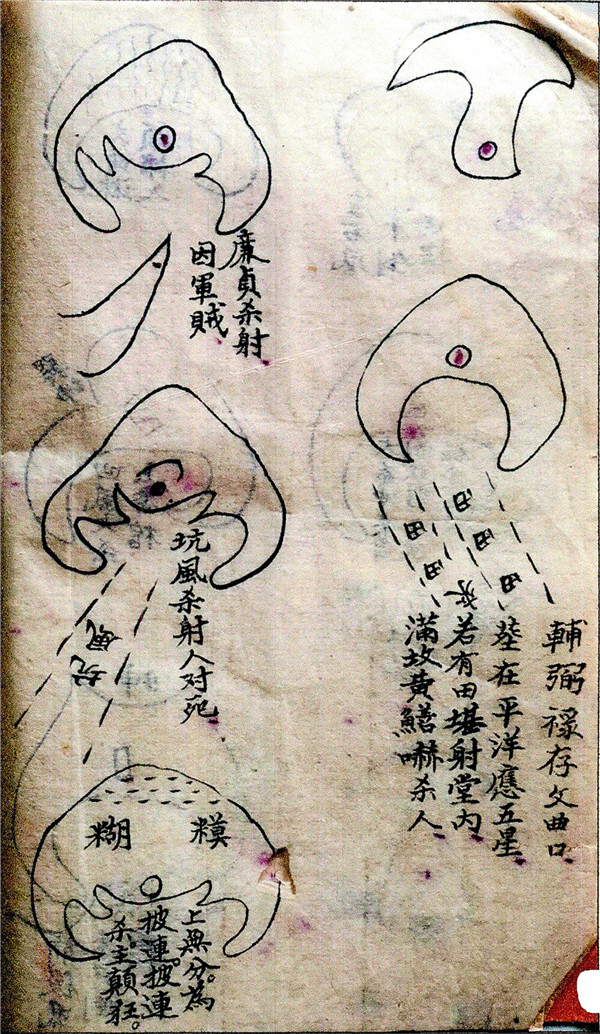 輔弼祿存文曲口
塋在平洋應五星
若有田堪射堂內
滿坟黃鱔嚇杀人
田
田
田
田
田
水
廉貞杀射
因軍賊
坑風杀射人对死
坑
風
糊
糢
上無分。為
披連。披連
杀。主顛狂。